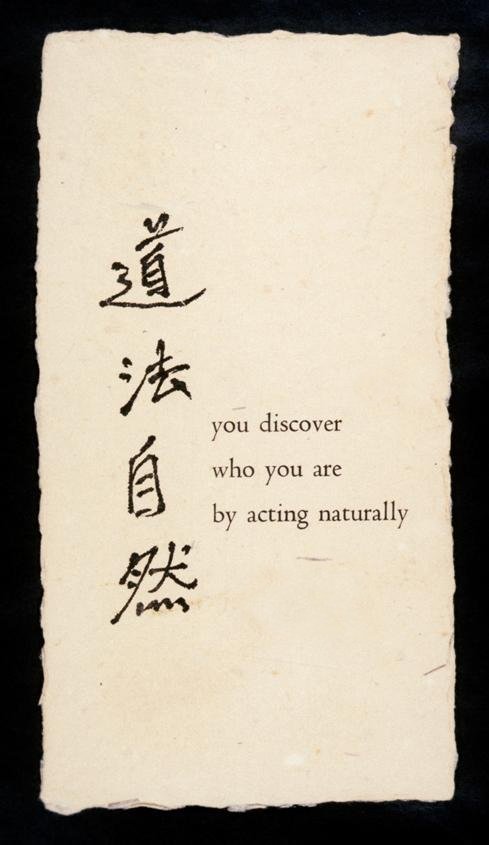 道法自然
you discover
who you are
by acting naturally